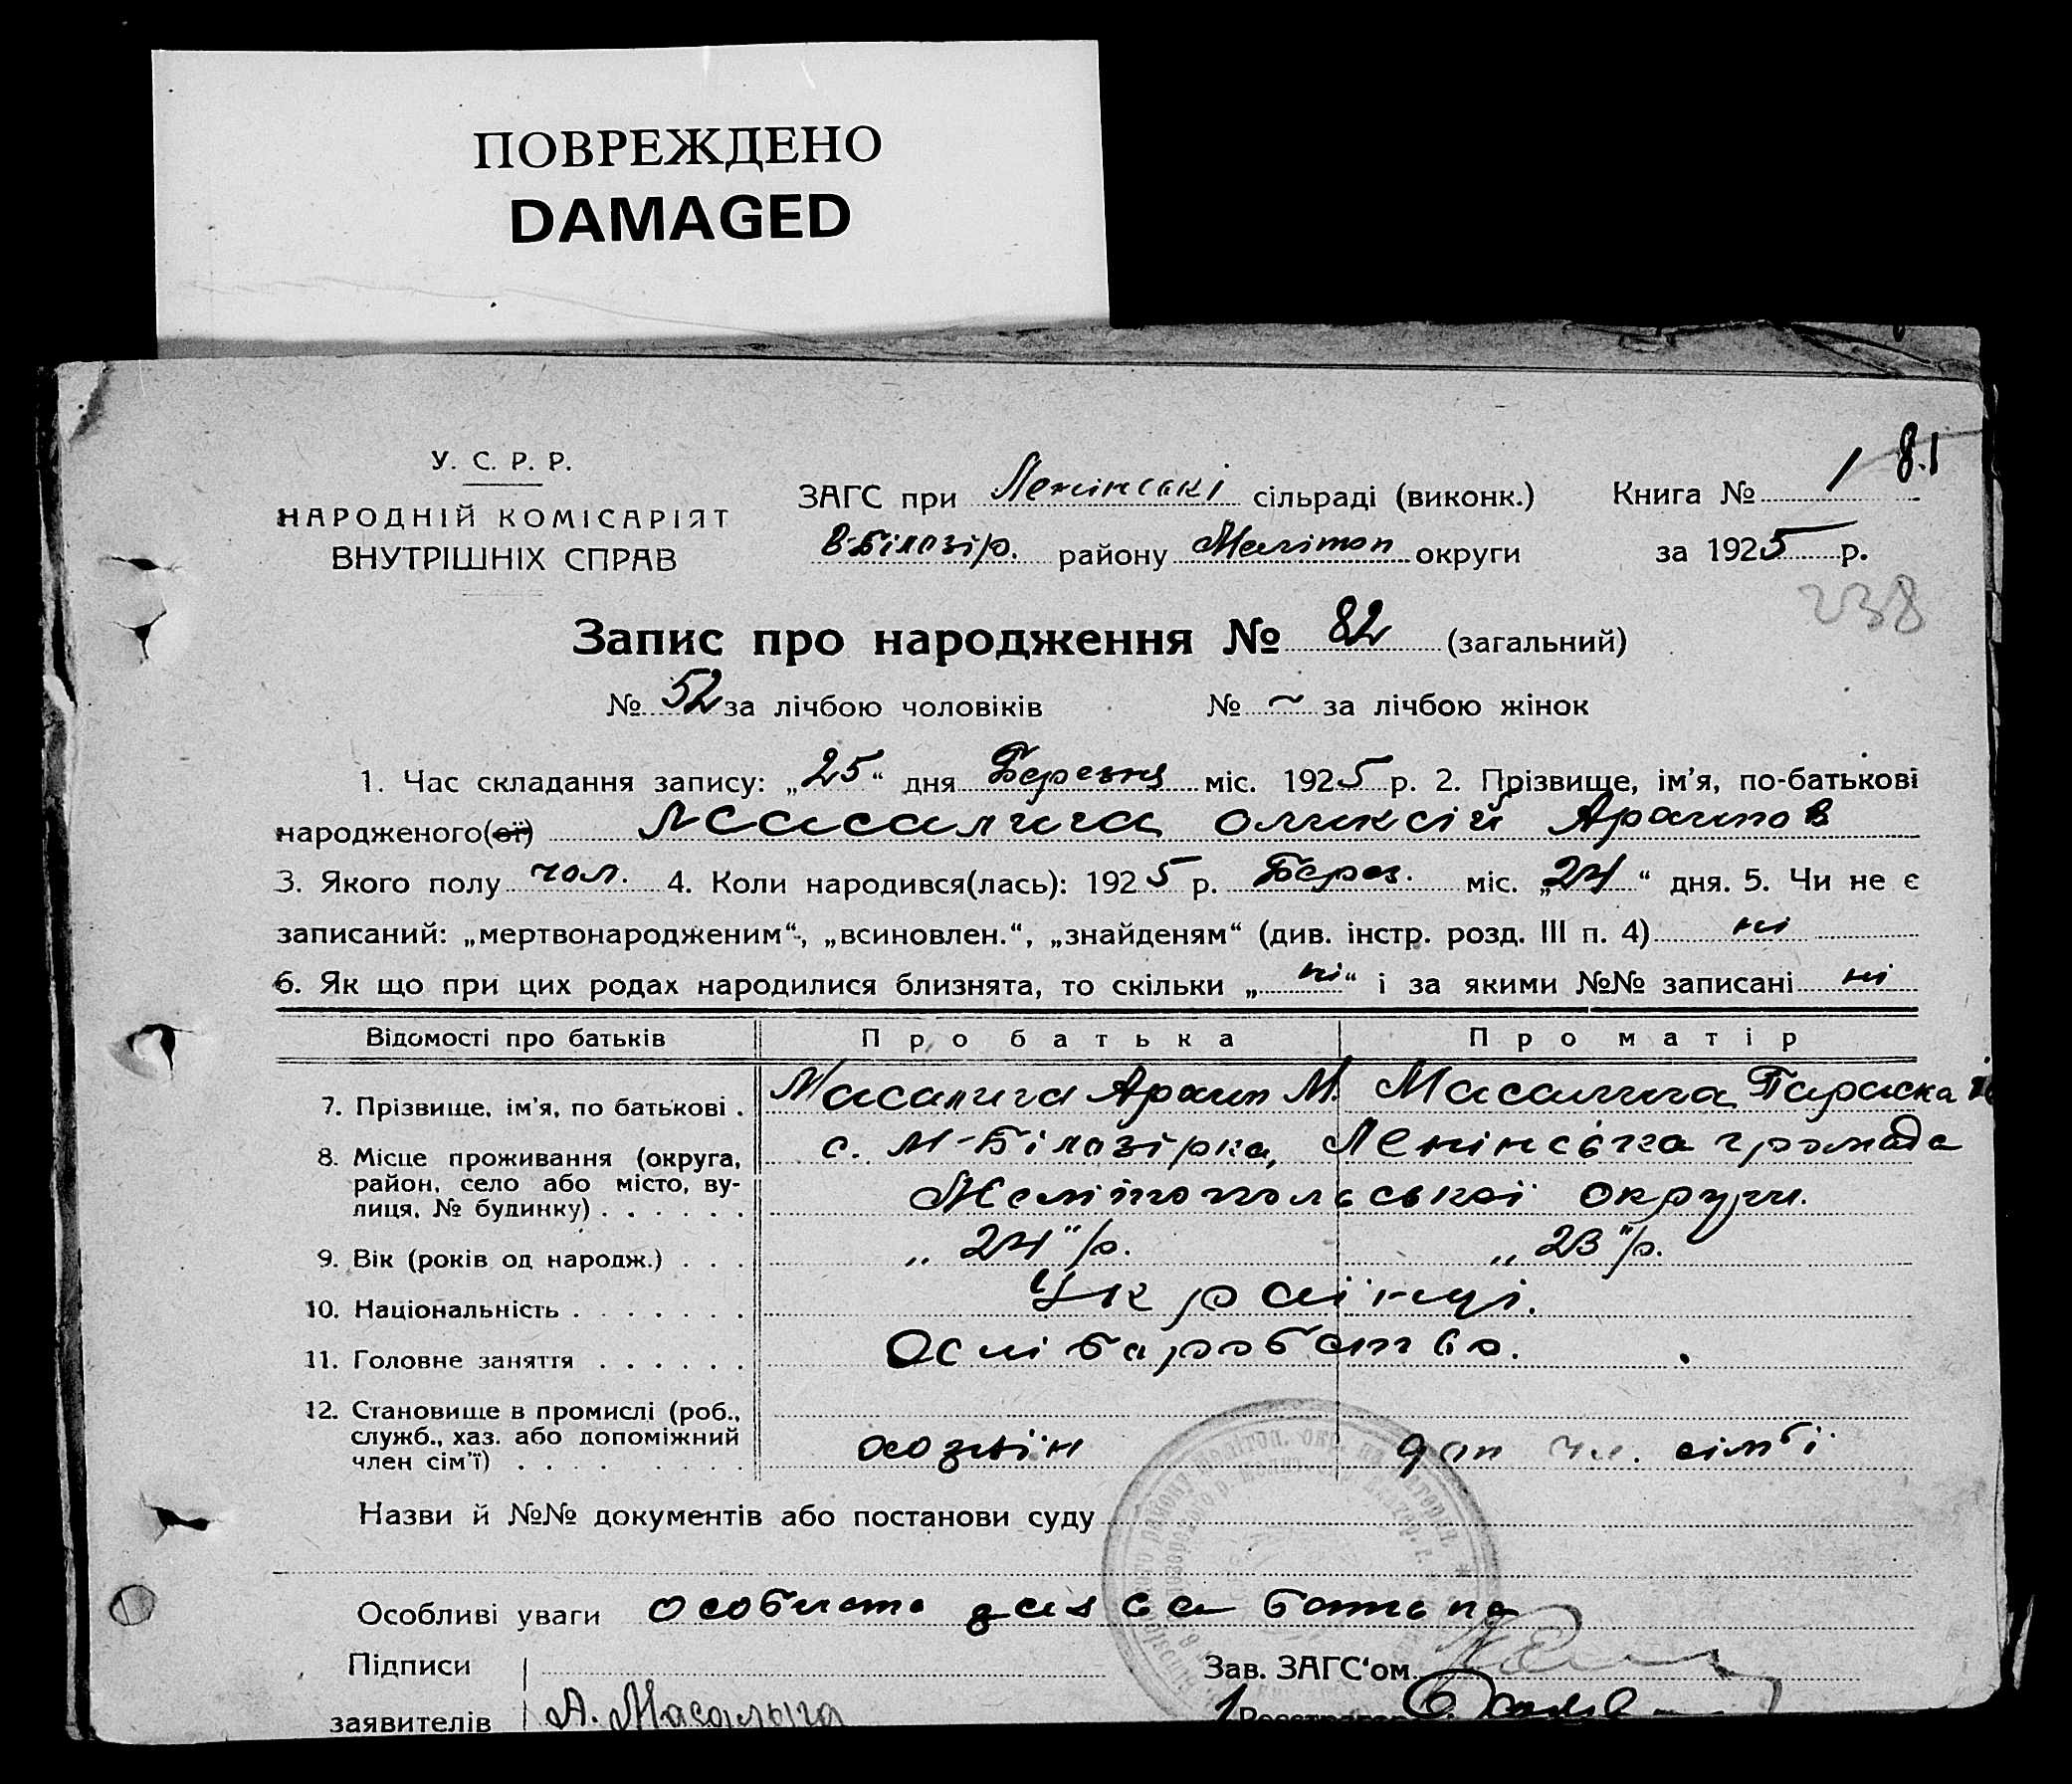 ПОВРЕЖДЕНО
DAMAGED
У. С. Р. Р.
НАРОДНІЙ КОМІСАРІЯТ
ВНУТРІШНІХ СПРАВ
ЗАГС при Ленінські сільраді (виконк.)
В-Білозір. району Мелітоп округи
Книга № 1 81
за 1925 р.
238
Запис про народження № 82 (загальний)
№ 52 за лічбою чоловіків № ~ за лічбою жінок
1. Час складання запису: „25“ дня Березня міс. 1925 р. 2. Прізвище, ім'я, по-батькові
народженого(ої) Масалига Оликсій
3. Якого полу чол. 4. Коли народився(лась): 1925 р. Берез. міс. „24“ дня. 5. Чи не є
записаний: „мертвонародженим“, „всиновлен.“, „знайденям“ (див. інстр. розд. III п. 4) ні
6. Як що при цих родах народилися близнята, то скільки „ні“ і за якими №№ записані ні
Відомості про батьків Про батька Про матір
7. Прізвище, ім'я, по батькові . Масалига М. Масалига Параска
8. Місце проживання (округа, район, село або місто, вулиця, № будинку) . . . . . . с. М-Білозірка, Ленінська громада
Мелітопольської округи.
9. Вік (років од народж.) . . . „24“ р. „23“ р.
10. Національність . . . . . . . Українці.
11. Головне заняття . . . . . .
12. Становище в промислі (роб., служб., хаз. або допоміжний член сім'ї) . . . . . . . . . хозяїн доп чл. сімʼї
Назви й №№ документів або постанови суду
Особливі уваги особиста заява батька
Підписи
заявителів А. Масалыга
Зав. ЗАГС'ом